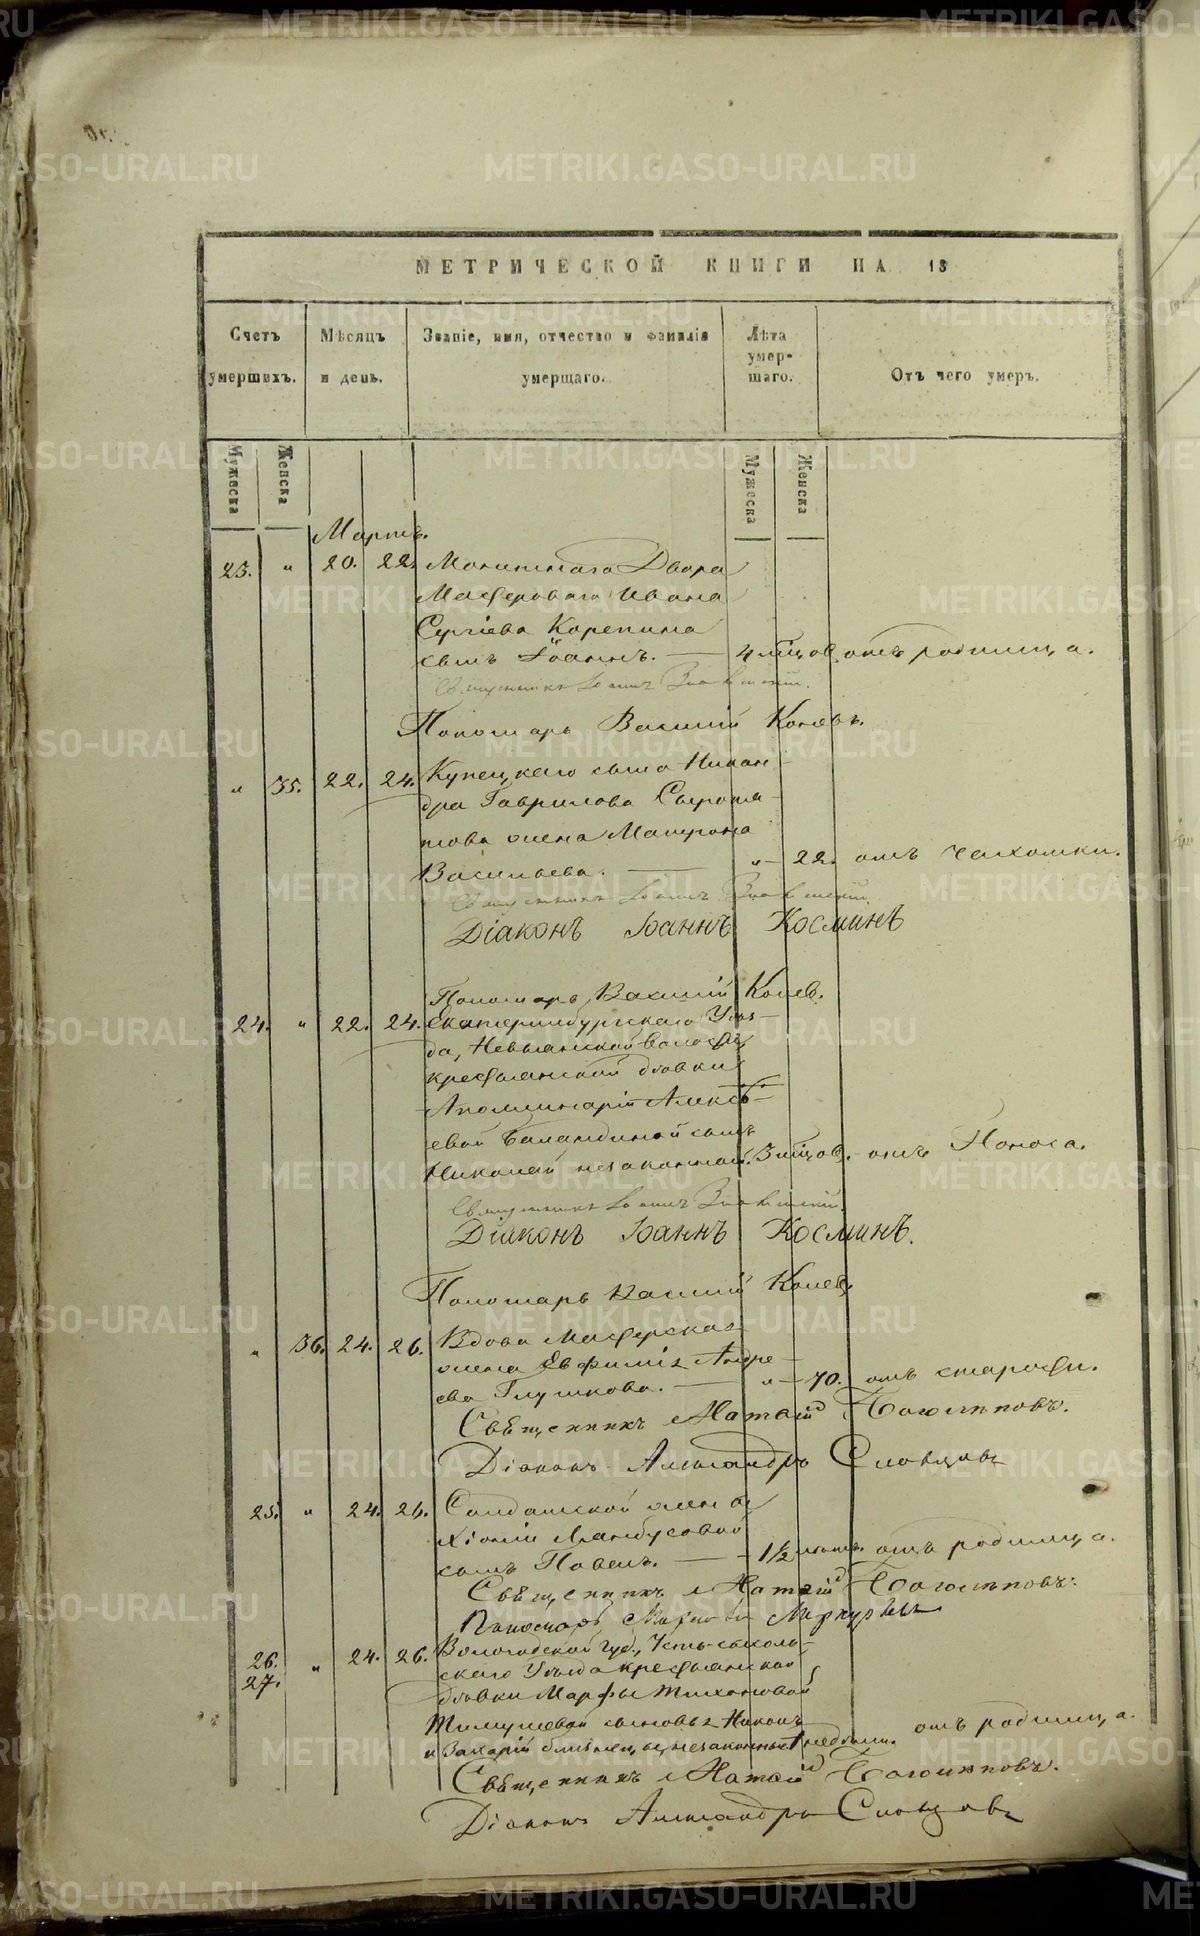 МЕТРИЧЕСКОЙ КНИГИ НА 18
Счетъ умершихъ.
Мѣсяцъ и день.
Званіе, имя, отчество и фамилія умершаго.
Лѣта умершаго.
Отъ чего умеръ.
Мужеска Женска
Мужеска Женска
Мартъ.
23. " 20. 22. Монетнаго Двора
Мастероваго Ивана
Сергіева Корепина
сынъ Іоаннъ. — 4 мѣсцов. отъ родимца.
Священникъ Іоаннъ
Пономарь Василій Коневъ.
" 35. 22. 24. Купецкаго сына Никан-
дра Гаврилова Сырома-
това жена Матрона
Васильева. — " — 22. отъ чахотки.
Священникъ Іоаннъ
Діаконъ Іоаннъ Косминъ
Пономарь Василій Конев.
24. " 22. 24. Екатеринбургскаго Уѣз-
да, Невьянской волости,
крестьянской дѣвки
Аполлинаріи Алексѣ-
евой Баландиной сынъ
Николай незаконный. 3 мѣсцов. отъ Поноса.
Священникъ Іоаннъ
Діаконъ Іоаннъ Косминъ.
Пономарь Василій Конев.
" 36. 24. 26. Вдова Мастерская
жена Евфимія Андре-
ева Глушкова. — " — 70. отъ старости.
Священникъ
Діаконъ Александръ Словцовъ
25. " 24. 26. Солдатской жены
Хіоніи
сынъ Павелъ. — 1½ отъ родимца.
Священникъ
Пономарь Меркурьевъ
26. 27. " 24. 26. Вологодской Губ., Усть-сысоль-
скаго Уѣзда крестьянской
дѣвки Марфы Тихоновой
сыновья Никонъ
и Захарій близнецы, незаконные 1 недѣли. отъ родимца.
Священникъ
Діаконъ Александръ Словцовъ
METRIKI.GASO-URAL.RU